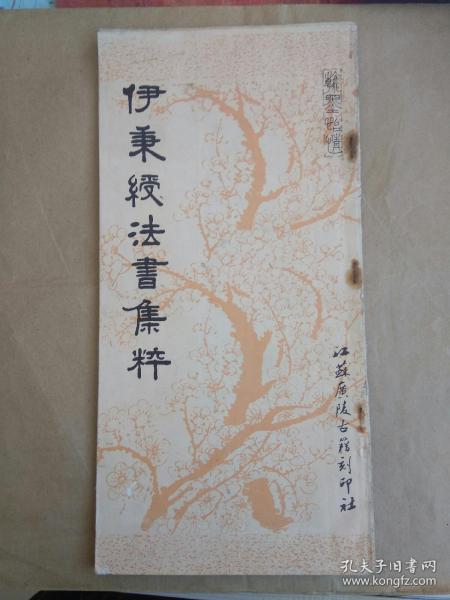 翰墨怡情
伊秉綬法書集粹
江蘇廣陵古籍刻印社
孔夫子旧书网
www.kongfz.com